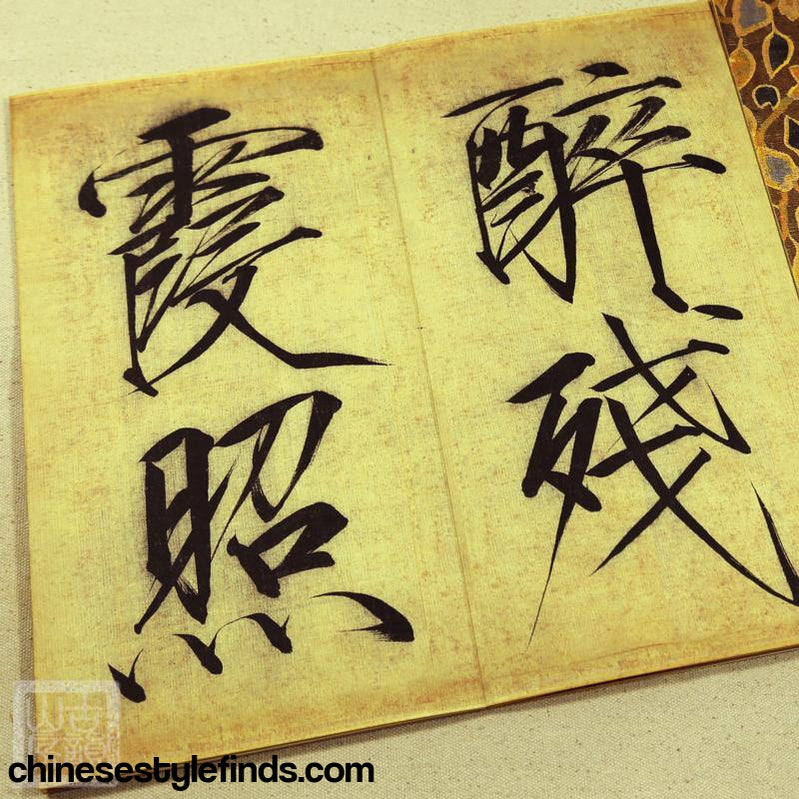 醉殘
霞照
chinesestylefinds.com